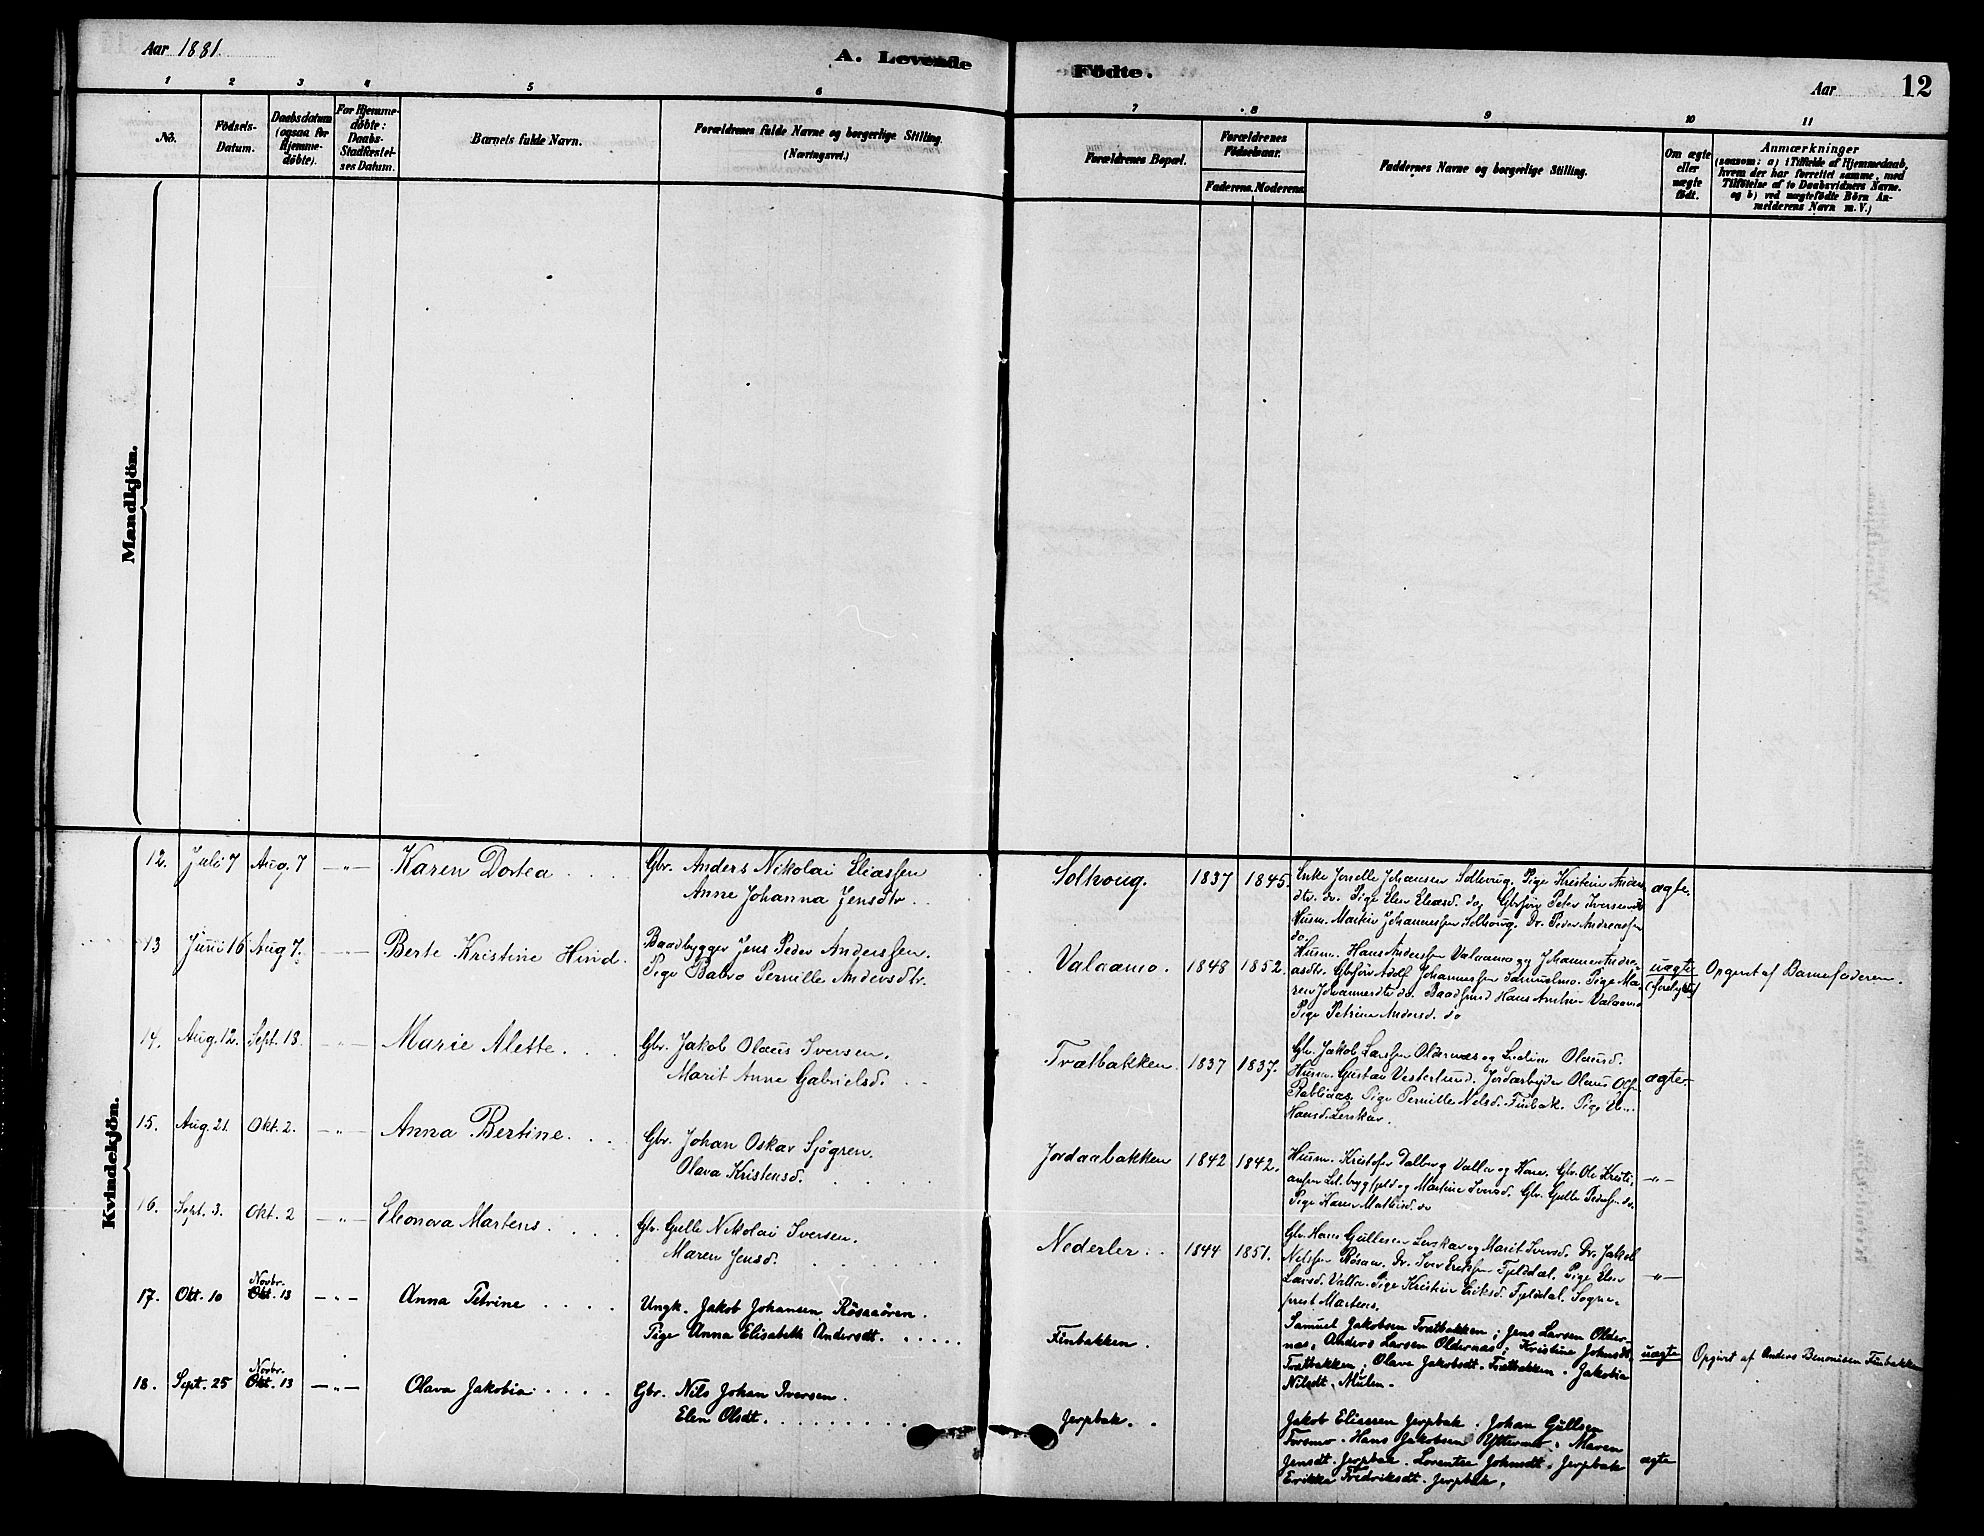 Aar 1881.
A. Levende Födte.
Aar
12
1 2 3 4 5 6 7 8 9 10 11
No.
Födsels-Datum.
Daabsdatum (ogsaa for Hjemme-døbte).
For Hjemme-døbte: Daabs-Stadfæstel-ses Datum.
Barnets fulde Navn.
Forældrenes fulde Navne og borgerlige Stilling. (Næringsvei.)
Forældrenes Bopæl.
Forældrenes Födselsaar.
Faderens. Moderens.
Faddernes Navne og borgerlige Stilling.
Om ægte eller uægte födt.
Anmærkninger
(saasom: a) i Tilfælde af Hjemmedaab, hvem der har forrettet samme, med Tilføielse af to Daabsvidners Navne. og b) ved uægtefödte Börn An-melderens Navn m.V.)
Mandkjön.
Kvindekjön.
12. Juli 7 Aug. 7 —"— Karen Dortea . . . .
Gbr. Anders Nikolai Eliassen
Anne Johanna Jensdtr. . .
Solhoug. 1837 1845.
Enke Johansen Solhoug. Pige Kristein Anders
dtr. do. Pige Elen Eliasd. do, Peter Iversen do
Husm. Johannessen Solhoug. Dr. Peder Andreassen
do.
ægte.
13 Juni 16 Aug 7. —"— Berte Kristine Hind.
Baadbygger Jens Peder Anderssen.
Pige Pernille Andersdtr.
Valaamo. 1848 1852.
Husm. Hans Anderssen Valaamo og Johanna Andre-
asdtr. Adolf Johannessen Pige Ma-
ren Johannesdtr do. Hans Valaamo
Pige Petrine Andersd. do
uægte
Opgivet af Barnefaderen.
14. Aug. 12. Sept. 18. —"— Marie Alette. . .
Gbr. Jakob Olaus Iversen.
Marit Anne Gabrielsd. . .
Trætbakken. 1837 1837.
Gbr. Jakob Larssen Oldernæs og Olausd.
Husm. Gustav Vesterlund. Jordarbejder Olaus
Pige Pernille Nilsd. Finbak. Pige
Hansd. Lerskar.
ægte
15. Aug. 21. Okt. 2. —"— Anna Bertine. . . .
Gbr. Johan Oskar Sjøgren.
Olava Kristensd.
Jordaabakken 1842 1842.
Husm. Kristofer Dalberg Valla og Kone. Gbr. Ole Kristi-
ansen og Martine Iversd. Gbr. Gulle Pedersen do.
Pige Karen do
—"—
16. Sept. 3. Okt. 2 —"— Eleonora Martens. . . .
Gbr. Gulle Nikolai Iversen.
Maren Jensd.
Nederler. . 1844 1851.
Gbr. Hans Gullesen Lerskar og Marit Iversd. Dr. Jakob
Nilssen Røsaen. Dr. Iver Eriksen Fjeldal. Pige Elen
Larsd. Valla. Pige Kristine Eriksd. Fjeldal. Sogne-
prest Martens.
—"—
17. Okt. 10 Novbr. Okt. 13 —"— Anna Petrine . . . .
Ungk. Jakob Johansen Røssaören.
Pige Anna Elisabeth Andersdt. . . . . .
Finbakken.
Samuel Jakobsen Trætbakken; Jens Larsen Older-
næs, Anders Larsen Oldernæs; Kristine Johnsdt.
Trætbakken; Olava Jakobsdt. Trætbakken. Jakobia
Nilsdt. Mulen.
uægte
Opgivet af Anders Benonisen Finbakken
18. Sept. 25 Novbr. Okt. 13 —"— Olava Jakobia . . . .
Gbr. Nils Johan Iversen.
Elen Olsdt. . . . . . . . .
Jerpbak. .
Jakob Eliessen Jerpbak. Johan Gullsen
Forsmo. Hans Jakobsen Ytteramo. Maren
Jensdt. Jerpbak. Lorentse Johnsdt. Jerpbak
Erikka Fredriksdt. Jerpbak.
ægte